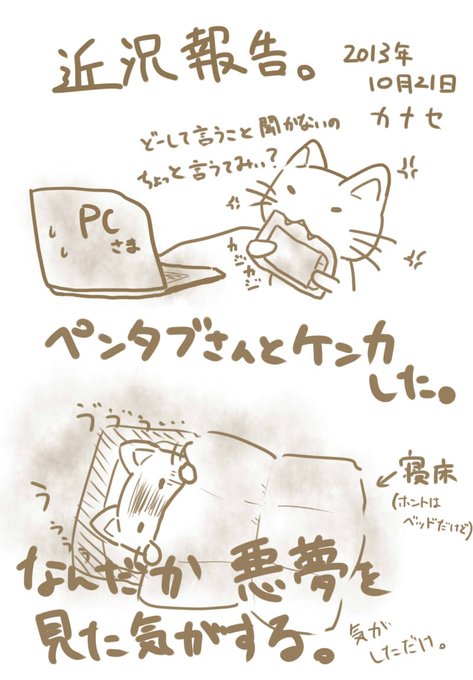 近況報告。
2013年
10月21日
カナセ
どーして言うこと聞かないの
ちょっと言うてみぃ?
PC
さま
ガジガジ
ペンタブさんとケンカ
した。
ヴヴヴ…
うぅぅぅ
←寝床
(ホントは
ベッドだけど)
なんだか 悪夢を
見た気がする。
気が
しただけ。